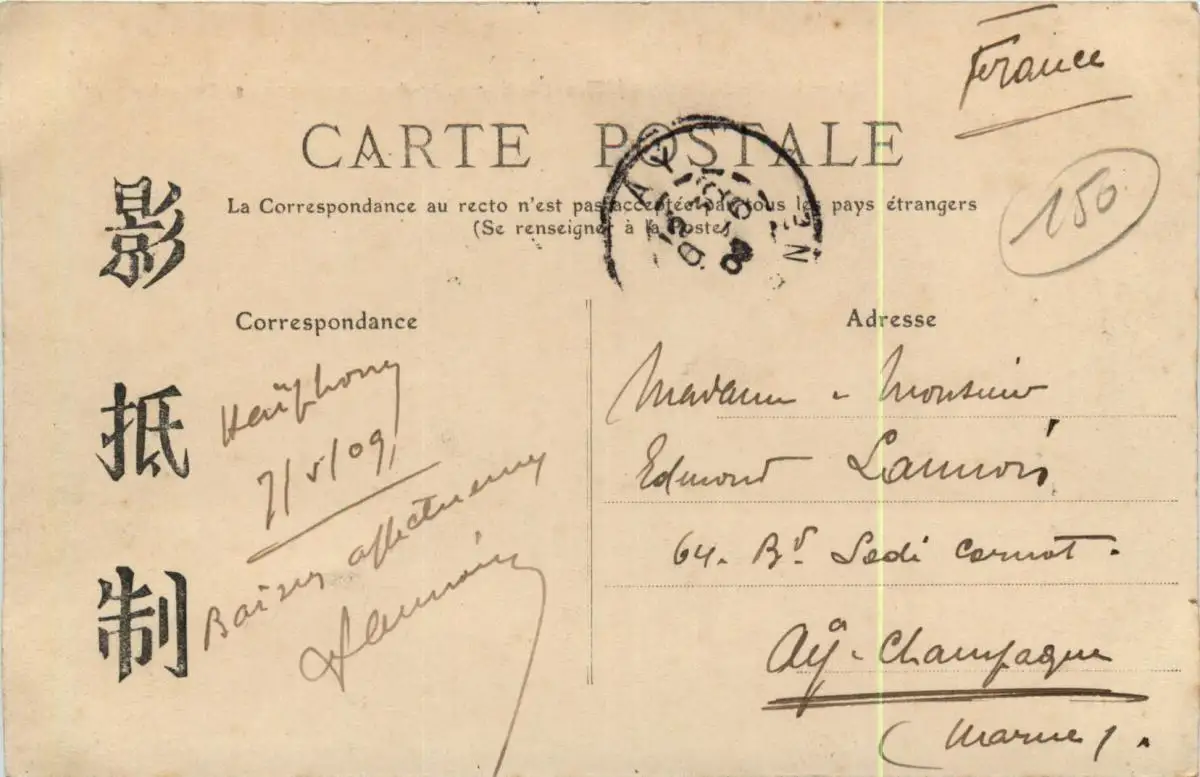 France
CARTE POSTALE
150
La Correspondance au recto n'est pas acceptée par tous les pays étrangers
(Se renseigner à la Poste)
影
抵
制
Correspondance
Haïphong
7/5/09
Baisers affectueux
Adresse
Madame & Monsieur
Edmond Launois
64. Bd. Sadi Carnot.
Aÿ-Champagne
(Marne).